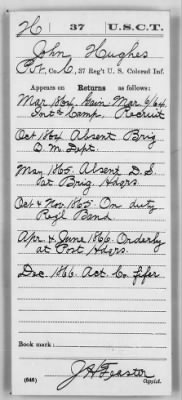 H | 37 | U.S.C.T.
John Hughes
Pvt, Co. C, 37 Reg't U. S. Colored Inf.
Appears on Returns as follows:
Mar 1864. Gain Mar 6/64.
Recruit
Oct 1864 Absent Brig
Q. M. Dept.
May 1865. Absent D.S.
at Brig. Hdqrs.
Oct & Nov. 1865. On duty
Reg'l Band
Apr. & June 1866. Orderly
at Post Hdqrs.
Dec. 1866. Act. Co. fifer
Book mark:
(646)
J H Feaster
Copyist.